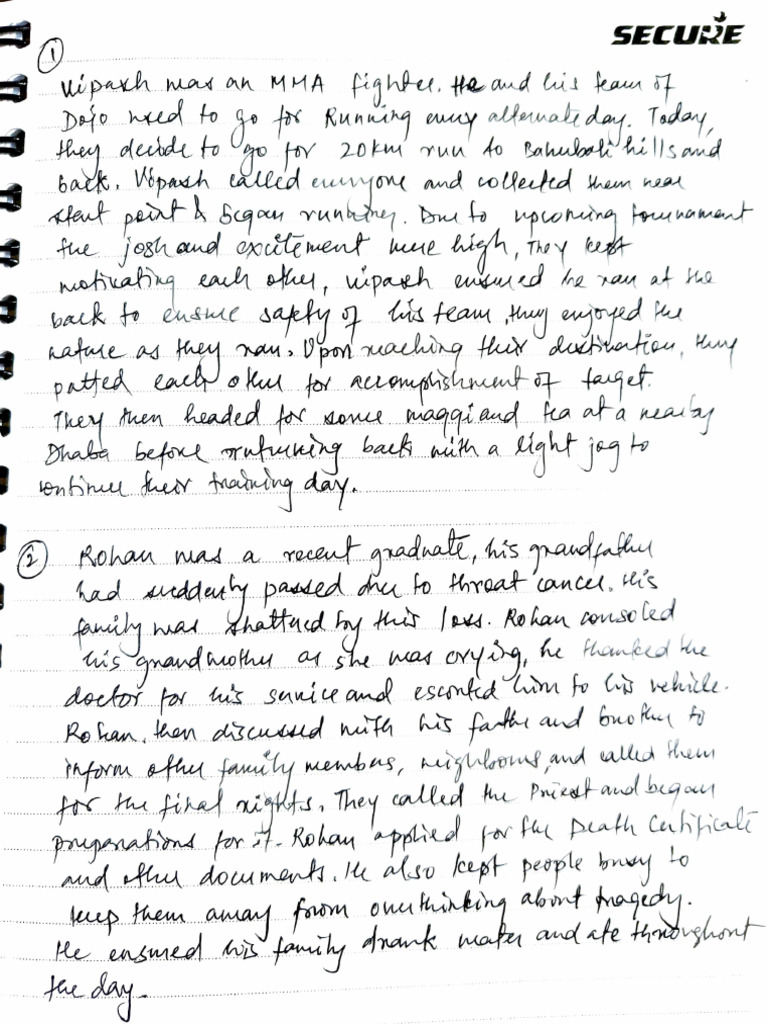 SECURE
①
Vipash was an MMA fighter. He and his team of
Dojo used to go for Running every alternate day. Today,
they decide to go for 20km run to Bahubali hills and
back. Vipash called everyone and collected them near
start point & began running. Due to upcoming tournament
the josh and excitement were high, They kept
motivating each other, Vipash ensured he ran at the
back to ensure safety of his team, they enjoyed the
nature as they ran. Upon reaching their destination, they
patted each other for accomplishment of target.
They then headed for some maggi and tea at a nearby
Dhaba before returning back with a light jog to
continue their training day.
② Rohan was a recent graduate, his grandfather
had suddenly passed due to throat cancer. His
family was shattered by this loss. Rohan consoled
his grandmother as she was crying, he thanked the
doctor for his service and escorted him to his vehicle.
Rohan, then discussed with his father and brother to
inform other family members, neighbours, and called them
for the final rights. They called the Priest and began
preparations for it. Rohan applied for the Death Certificate
and other documents. He also kept people busy to
keep them away from overthinking about tragedy.
He ensured his family drank water and ate throughout
the day.